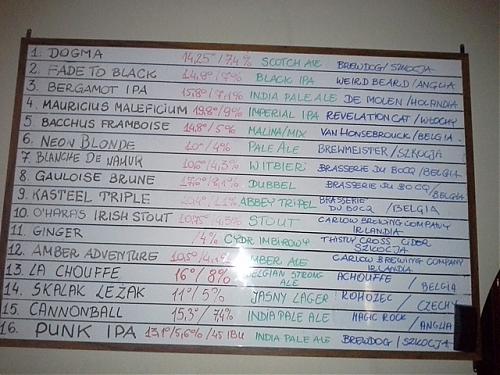 1. DOGMA 14,25°/7,4% SCOTCH ALE BREWDOG/SZKOCJA
2. FADE TO BLACK BLACK IPA WEIRD BEARD/ANGLIA
3. BERGAMOT IPA INDIA PALE ALE DE MOLEN/HOLANDIA
4. MAURICIUS MALEFICIUM 19,8°/9% IMPERIAL IPA REVELATION CAT/WŁOCHY
5. BACCHUS FRAMBOISE 14,8°/5% MALINA/MIX VAN HONSEBROUCK/BELGIA
6. NEON BLONDE PALE ALE BREWMEISTER/SZKOCJA
7. BLANCHE DE NAMUR WITBIER BRASSERIE DU BOCQ/BELGIA
8. GAULOISE BRUNE DUBBEL BRASSERIE DU BOCQ/BELGIA
9. KASTEEL TRIPLE ABBEY TRIPEL BRASSERIE DU BOCQ /BELGIA
10. O'HARA'S IRISH STOUT STOUT CARLOW BREWING COMPANY IRLANDIA
11. GINGER /4% CYDR IMBIROWY CROSS CIDER SZKOCJA
12. AMBER ADVENTURE AMBER ALE CARLOW BREWING COMPANY IRLANDIA
13. LA CHOUFFE 16°/8% BELGIAN STRONG ALE ACHOUFFE / BELGIA
14. SKALAK LEŻAK 11°/5% JASNY LAGER ROHOZEC / CZECHY
15. CANNONBALL 15,3°/7,4% INDIA PALE ALE MAGIC ROCK / ANGLIA
16. PUNK IPA 13,1°/5,6%/45 IBU INDIA PALE ALE BREWDOG/SZKOCJA